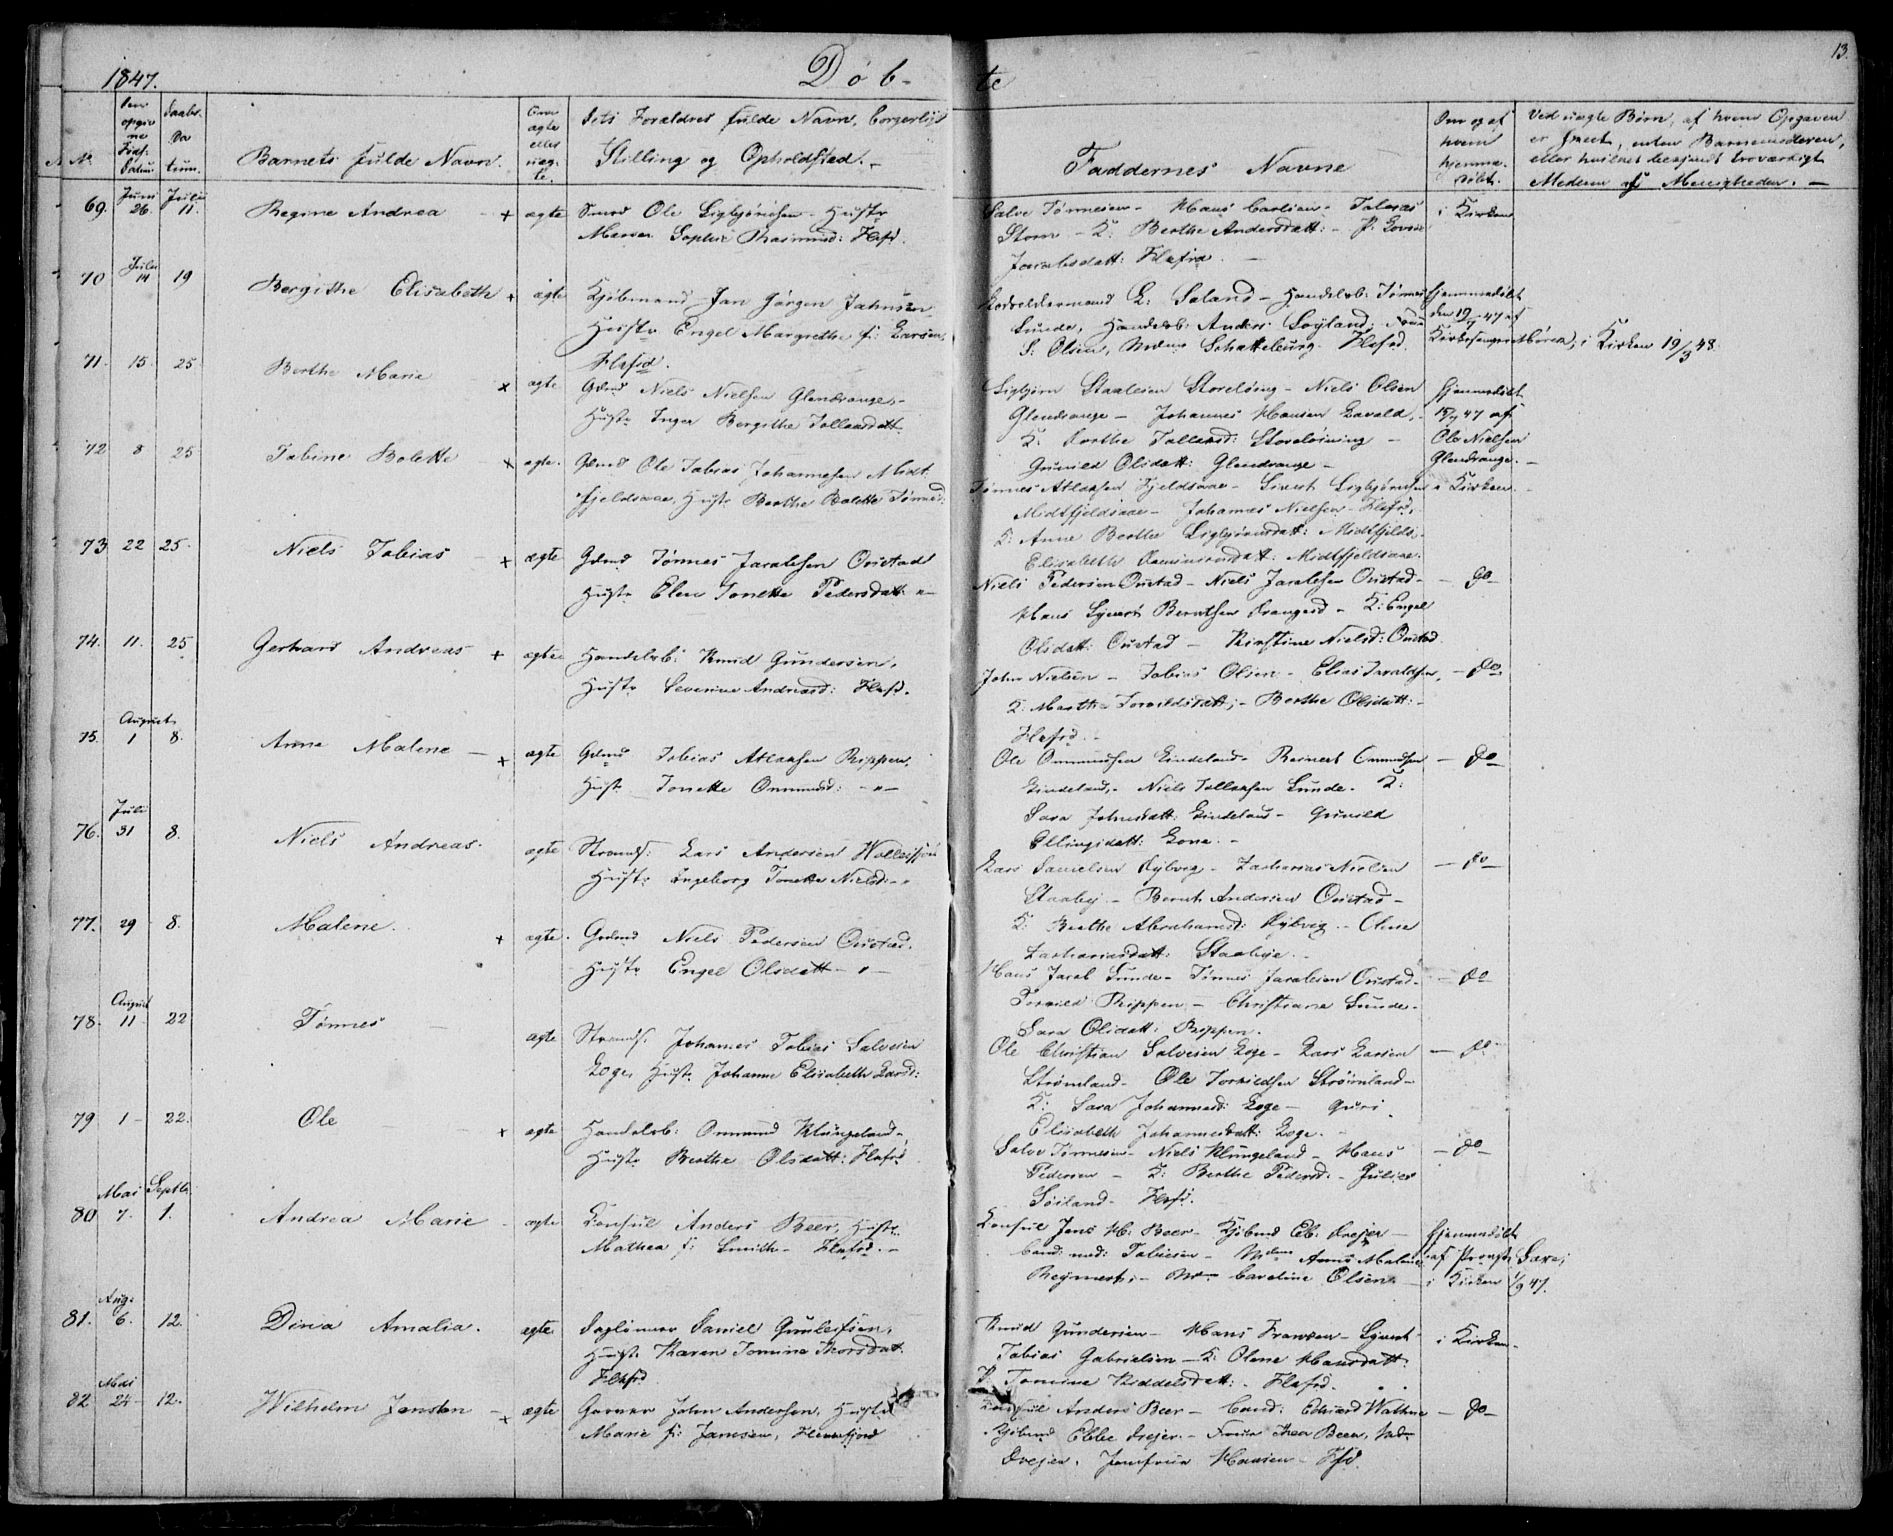 1847.
Døb-
te
13.
No.
Den opgivne Føds. Datum
Daabs. Datum.
Barnets fulde Navn.
Om ægte eller uægte.
Dets Forældres fulde Navn, borgerlige
Stilling og Opholdsted.
Faddernes Navne
Om og af hvem hjemmedøbt.
Ved uægte Børn, af hvem Opgaven
er skeet, enten Barnemoderen,
eller hvilket bekjendt troværdigt
Medlem af Menigheden. —
69. Juni 26. Julii 11. Regine Andrea + ægte Smed Ole Sigbjørnsen Hustr
Maren Sophie Rasmusd: Flefd.
Salve Tønnesen - Hans Carlsen - Tobias
Storm - K: Berthe Andersdatt: - P:
Jacobsdatt: Flefjo. —
i Kirken
70 Julii 14 19 Bergithe Elisabeth + ægte Kjøbmand Jan Jørgen Jahnsen,
Hustr Engel Margrethe f: Larsen,
Flefrd.
L: Saland - Handelsb: Tønnes
Lunde, Handelsb: Anders Søyland,
S: Olsen, Mdme Schatteburg. Flefrd.
hjemmedøbt
den 19/7 47 af
Kirkesanger Mörch, i Kirken 19/3 48
71. 15. 25 Berthe Marie + ægte Gdmd Niels Nielsen Glendrange,
Hustr Inger Bergithe Tollaksdatt:
Sigbjørn Staalesen Storeløning - Niels Olsen
Glendrange - Johannes Hansen Lavold,
K: Dorthe Tollaksd: Storeløning -
Gunild Olsdatt: Glendrange -
hjemmedøbt
15/7 47 af
Ole Nielsen
Glendrange. -
72 8 25 Tobine Bolette + ægte. Gdmd Ole Tobias Johannesen Midt
fjeldsaae, Hustr Berthe Bolette Tønnesd:
Tønnes Atlaksen Fjeldsaae - Sivert Sigbjørnsen
Midtfjeldsaae - Johannes Nielsen - Flefd,
K: Anne Berthe Sigbjørnsdatt: Midtfjelds.
Elisabeth Rasmusdatt: Midtfjeldsaae.
i Kirken -
73 22 25 Niels Tobias + ægte Gdmd Tønnes Jacobsen Oustad
Hustr Elen Tonette Pedersdatt: "—
Niels Pedersen Oustad - Niels Jacobsen Oustad -
Hans Syvert Berntsen Drangsd - K: Engel
Olsdatt: Oustad - Kirstine Nielsd: Oustad
— do —
74. 11. 25 Gerhard Andreas + ægte Handelsb: Knud Gundersen,
Hustr Severine Andreasd: Flefd.
John Nielsen - Tobias Olsen - Elias Jacobsen,
K: Marthe Torkildsdatt; - Berthe Olsdatt: -
Flefrd. -
— do —
75. August 1 8. Anne Malene — + ægte Gdmd Tobias Atlaksen Rippen,
Hustr Tonette Ommundsd: — " —
Ole Ommundsen Lindeland - Reinert Ommundsen
Lindeland, - Niels Tollaksen Lunde. K:
Sara Johnsdatt: Lindeland - Gunild
Ellingsdatt: Lone. -
— do —
76. Julii 31 8. Niels Andreas. ægte Strands: Lars Andersen
Hustr Ingeborg Tonette Nielsd: - "
Lars Samuelsen Dybvig - Zacharias Nielsen
Staaby - Bernt Andersen Oustad -
K: Berthe Abrahamsd: Dybvig - Oline
Zachariasdatt: Staabye. -
— do —
77. 29 8. Malene. + ægte. Gdmd Niels Pedersen Oustad.
Hustr Engel Olsdatt — " —
Hans Jacob Lunde - Tønnes Jacobsen Oustad -
Torkild Rippen - Christiane Lunde -
Sara Olsdatt: Rippen.
— do —
78. August 11 22 Tønnes — ægte Strands. Johannes Tobias Salvesen
Loge, Hustr Johanne Elisabeth Larsd:
Ole Christian Salvesen Loge - Lars Larsen
Strømland - Ole Torkildsen Strømland -
K: Sara Johannesd: Loge - Guri
Elisabeth Johannesdatt: Loge. -
— do —
79 1 - 22. Ole + ægte Handelsb: Ommund Klungeland -
Hustr Berthe Olsdatt: Flefrd
Salve Tønnesen - Niels Klungeland - Hans
Pedersen - K: Berthe Pedersd: - Julie
Søiland - Flefd.
— do —
80 Mai 7. Septbr. 1. Andrea Marie - ægte Consul Anders Beer, Hustr
Mathea f: Smith - Flefrd. -
Consul Jens H: Beer - Kjøbmd Eb: Drejer -
Cand: med: Tobiesen - Mdme Anne Malene
Reymert, - Mdme Caroline Olsen -
hjemmedøbt
af Provst Saxe;
i Kirken 1/9 47.
81. Aug: 6. 12. Dina Amalia. ægte Daglønner Daniel Gunleifsen,
Hustr Karen Tomine Thorsdatt.
Flefrd
Knud Gundersen - Hans Franzen - Syvert
Tobias Gabrielsen - K: Olene Hansdatt:
P. Tomine Kiddelsdatt: Flefrd. -
i Kirken -
82 Mai 24 - 12. Wilhelm Jensten - + ægte Garver John Andersen, Hustr
Marie f: Jansen, Flekkefjord
Consul Anders Beer - Cand: Edvard Wathne
Kjøbmd Ebbe Drejer - Frue Thea Beer, Md
Drejer, Jomfrue Hansen - Ffd.
— do —